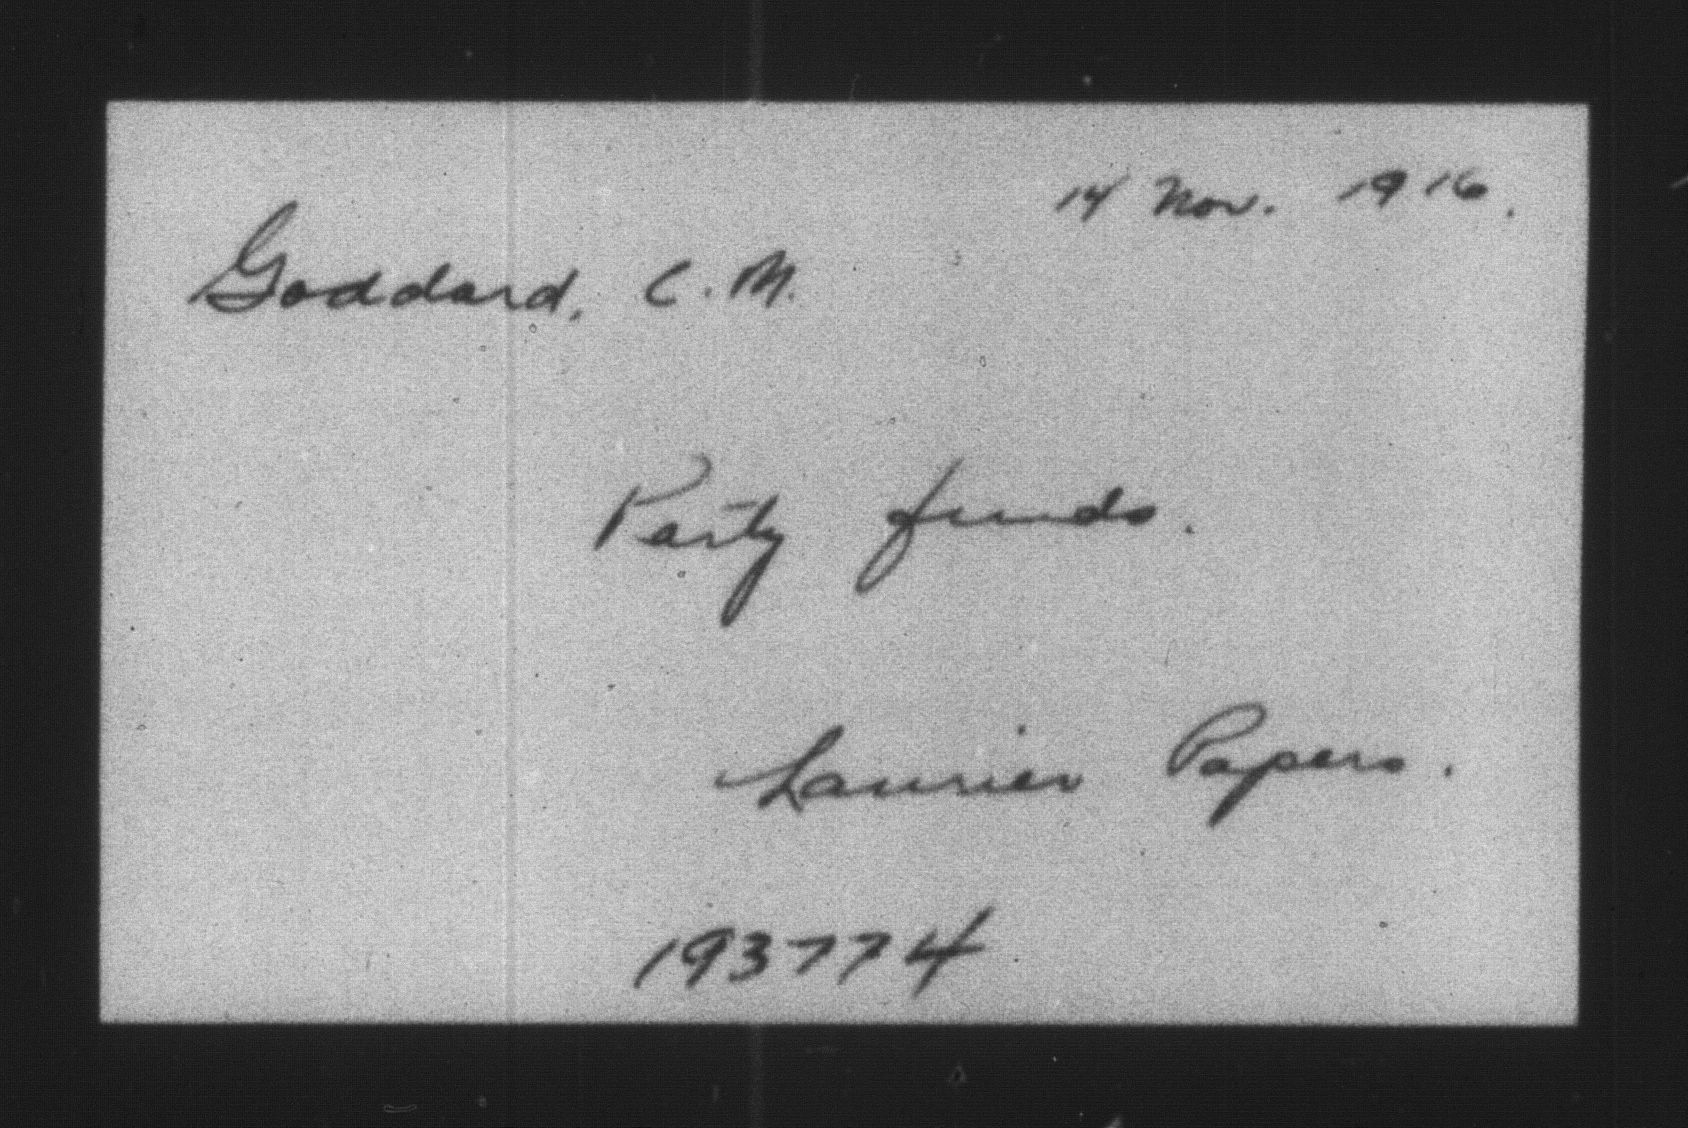 14 Nov. 1916.
Goddard, C. M.
Party funds.
Laurier Papers.
193774